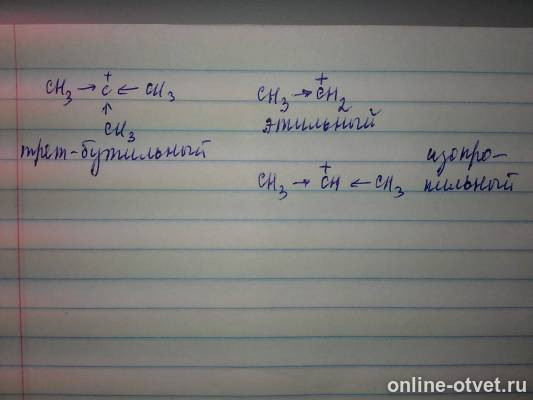 CH₃ → C⁺ ← CH₃
↑
CH₃
трет-бутильный
CH₃ → C⁺H₂
этильный
CH₃ → C⁺H ← CH₃
изопро-
пильный
online-otvet.ru